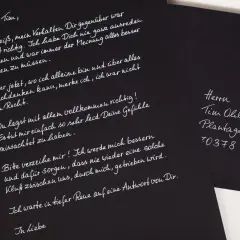 Tim,
iß, mein Verhalten Dir gegenüber war
richtig. Ich habe Dich nie ganz ausreden
und war immer der Meinung alles besser
en zu müssen.
er jetzt, wo ich alleine bin und über alles
chdenken kann, merke ich, ich war nicht
Recht.
Du lagst mit allem vollkommen richtig!
Es tut mir einfach so sehr leid Deine Gefühle
missachtet zu haben.
Bitte verzeihe mir! Ich werde mich bessern
und dafür sorgen, dass nie wieder eine solche
Kluft zwischen uns, durch mich, getrieben wird.
Ich warte in tiefer Reue auf eine Antwort von Dir.
In Liebe
Herrn
Tim
Plantage
70378